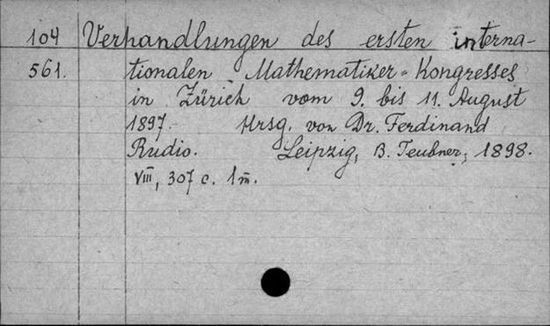 104 Verhandlungen des ersten interna-
561. tionalen Mathematiker-Kongresses
in Zürich vom 9. bis 11. August
1897. Hrsg. von Dr. Ferdinand
Rudio. Leipzig, B. Teubner, 1898.
VIII, 307 c. 1 m.